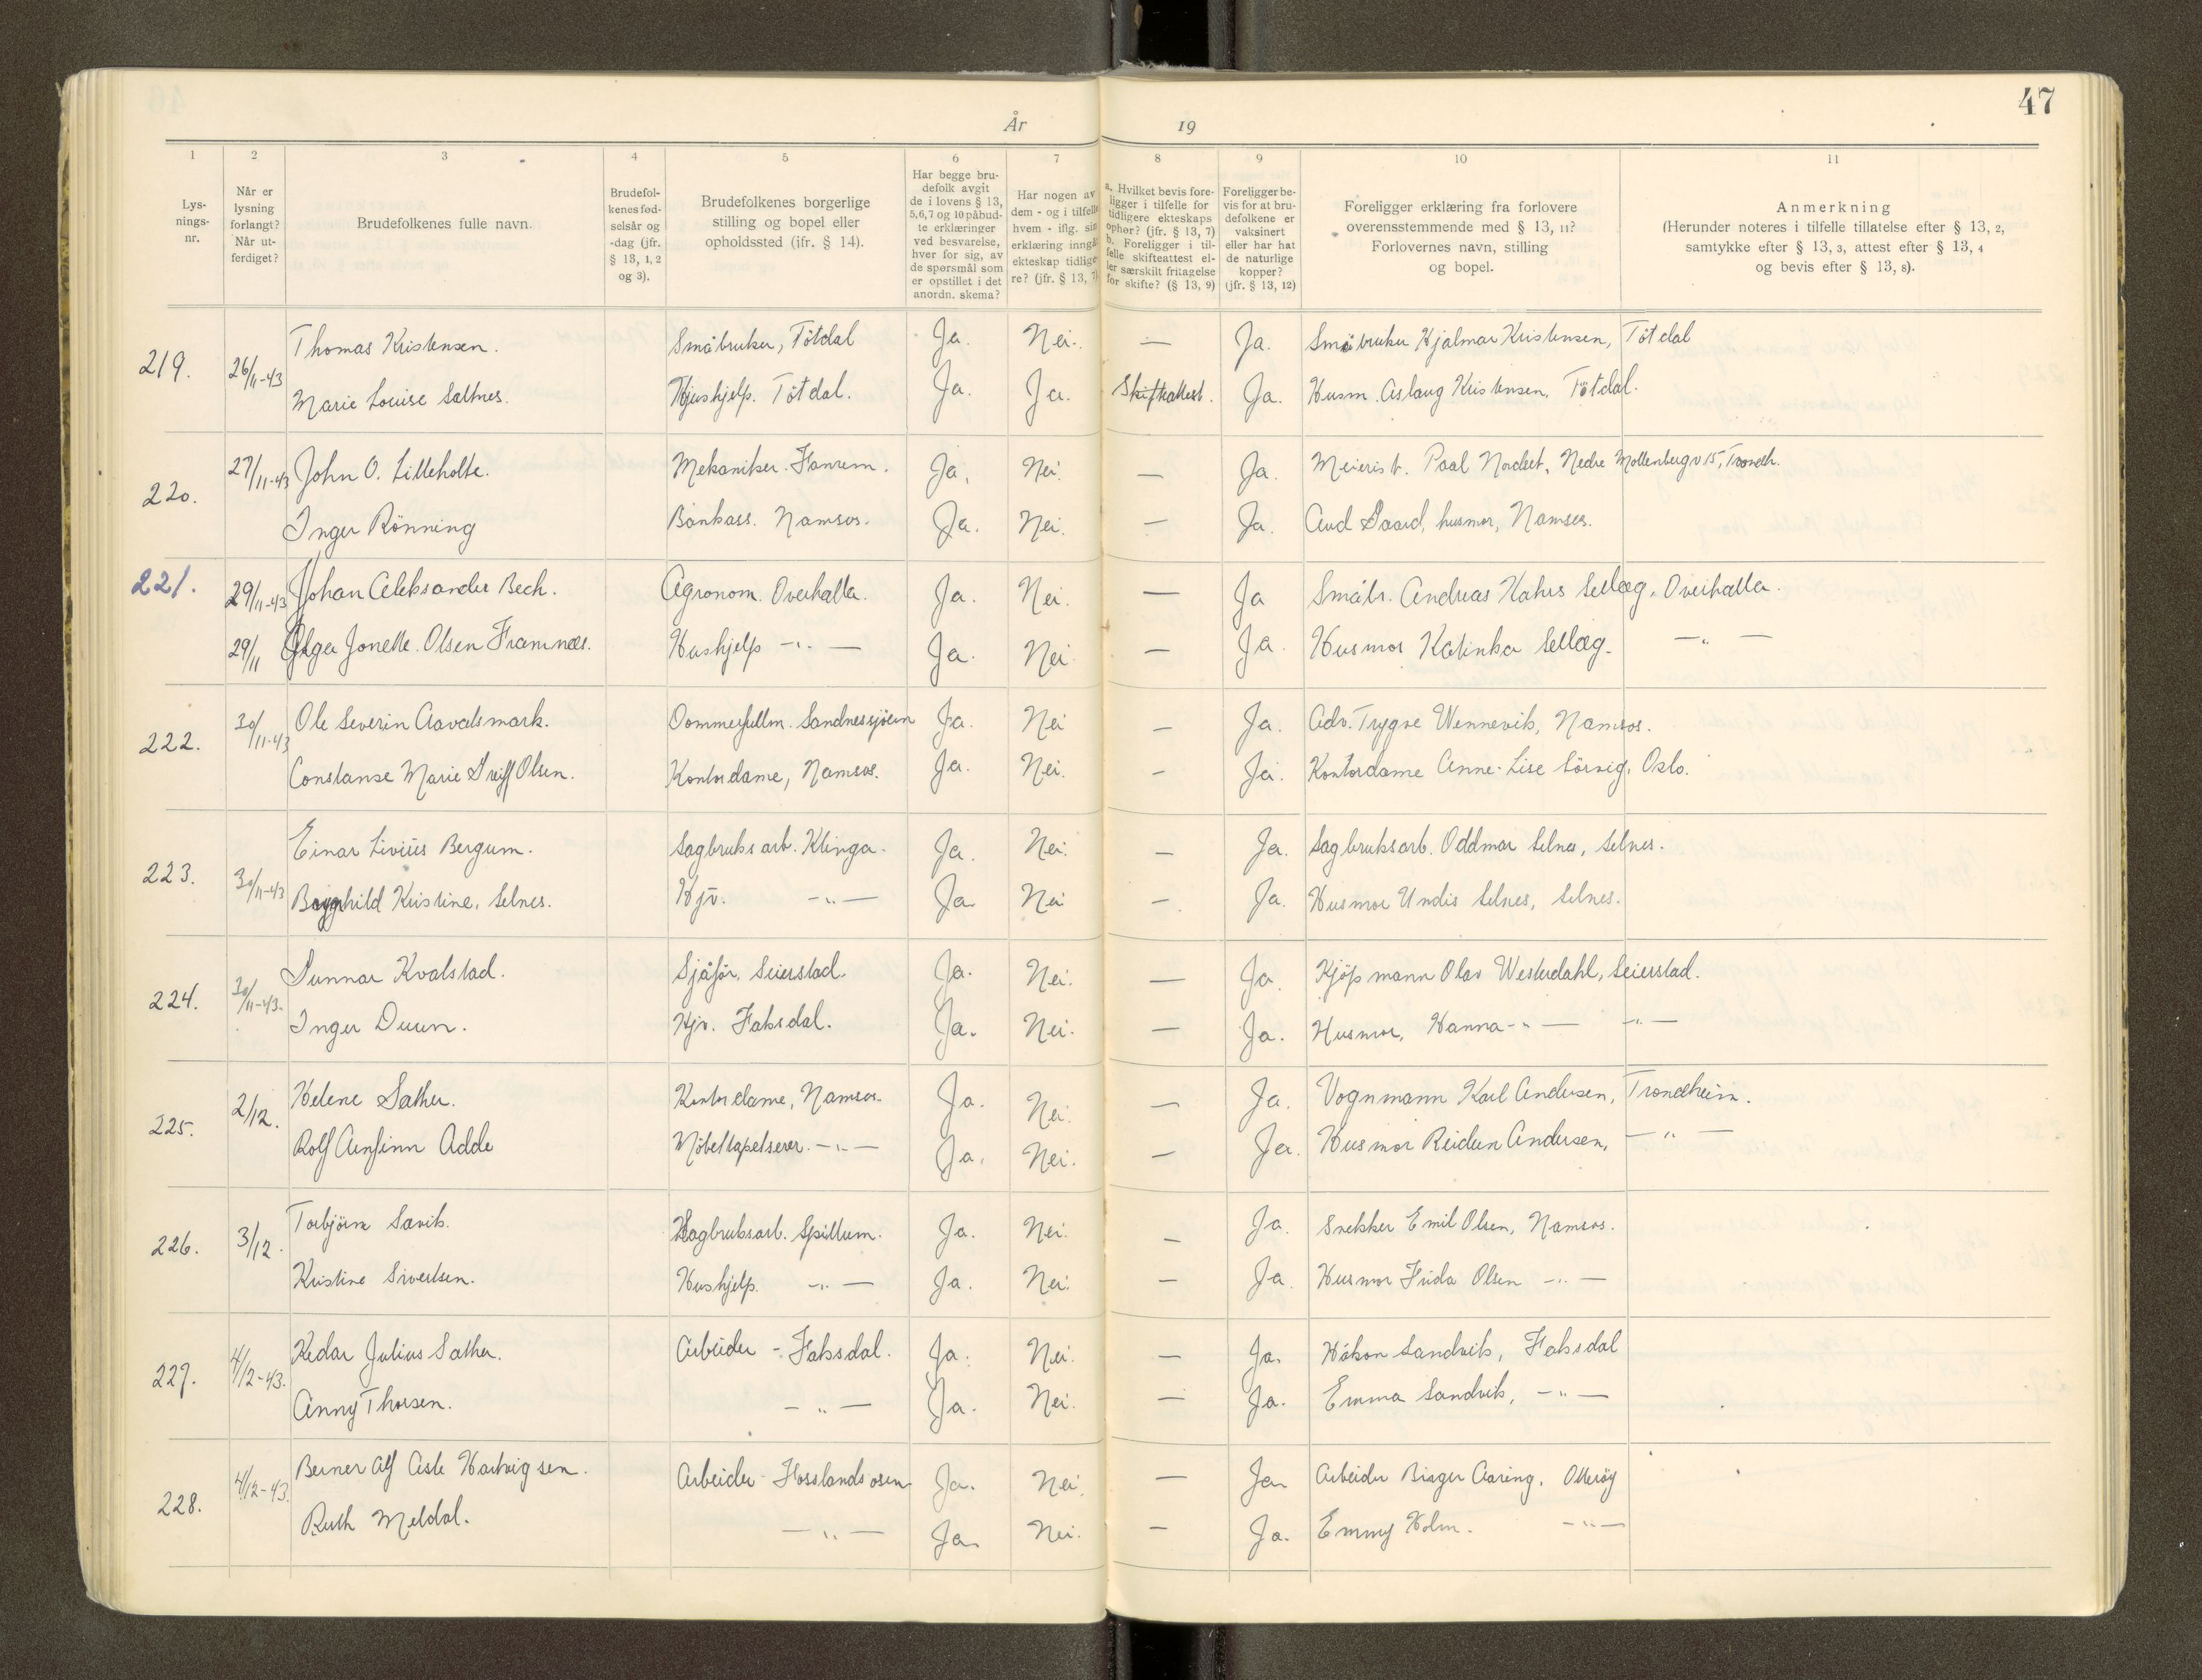 47
År 19
1 2 3 4 5 6 7 8 9 10 11
Lys-
nings-
nr.
Når er
lysning
forlangt?
Når ut-
ferdiget?
Brudefolkenes fulle navn.
Brudefol-
kenes fød-
selsår og
-dag (jfr.
§ 13, 1, 2
og 3).
Brudefolkenes borgerlige
stilling og bopel eller
opholdssted (jfr. § 14).
Har begge bru-
defolk avgit
de i lovens § 13,
5,6,7 og 10 påbud-
te erklæringer
ved besvarelse,
hver for sig, av
de spørsmål som
er opstillet i det
anordn. skema?
Har nogen av
dem - og i tilfelle
hvem - iflg. sin
erklæring inngåt
ekteskap tidlige-
re? (jfr. § 13, 7)
a. Hvilket bevis fore-
ligger i tilfelle for
tidligere ekteskaps
ophør? (jfr. § 13, 7)
b. Foreligger i til-
felle skifteattest el-
ler særskilt fritagelse
for skifte? (§ 13, 9)
Foreligger be-
vis for at bru-
defolkene er
vaksinert
eller har hat
de naturlige
kopper?
(jfr. § 13, 12)
Foreligger erklæring fra forlovere
overensstemmende med § 13, 11?
Forlovernes navn, stilling
og bopel.
Anmerkning
(Herunder noteres i tilfelle tillatelse efter § 13, 2,
samtykke efter § 13, 3, attest efter § 13, 4
og bevis efter § 13, 8).
219. 26/11-43 Thomas Kristensen. Småbruker, Tötdal Ja. Nei. — Ja. Småbruker Hjalmar Kristensen, Tötdal
Marie Louise Saltnes. Hushjelp. Tötdal. Ja. Ja. Skifteattest. Ja. Husm. Aslaug Kristensen. Tötdal.
220. 27/11-43 John O. Lilleholte. Mekaniker. Ja. Nei. — Ja. Meierist. Paal Nordeet, Nedre Mollenbergv 15, Trondh.
Inger Rönning Bankass. Namsos. Ja. Nei. — Ja. Aud Gaard, husmor, Namsos.
221. 29/11-43 Johan Aleksander Bech. Agronom. Overhalla. Ja. Nei. — Ja Småbr. Andreas Hahrs Sellæg, Overhalla.
29/11 Olga Jonette Olsen Framnæs. Hushjelp -"- Ja. Nei — Ja. Husmor Katinka Sellæg. — " —
222. 30/11-43 Ole Severin Aavatsmark. Dommerfullm. Sandnessjöen Ja. Nei — Ja. Adv. Trygve Wennevik, Namsos.
Constanse Marie Greiff Olsen. Kontordame, Namsos. Ja. Nei. — Ja. Kontordame Anne-Lise Sörvig, Oslo.
223. 30/11-43 Einar Livius Bergum. Sagbruksarb. Klinga. Ja. Nei. — Ja. Sagbruksarb. Oddmar Selnes, Selnes.
Kristine. Selnes. Hjv. -"- Ja. Nei — Ja. Husmor Undis Selnes, Selnes.
224. 30/11-43. Gunnar Kvalstad. Sjåför. Seierstad. Ja. Nei. — Ja. Kjöpmann Olav Westerdahl, Seierstad.
Inger Duun. Hjv. Faksdal. Ja. Nei. — Ja. Husmor, Hanna -"- -"-
225. 2/12. Helene Sather. Kontordame, Namsos. Ja. Nei. — Ja. Vognmann Karl Andersen, Trondheim.
Rolf Arnfinn Adde Möbeltapetserer. -"- Ja. Nei. — Ja. Husmor Reidun Andersen, — " —
226. 3/12. Torbjörn Sævik. Sagbruksarb. Spillum. Ja. Nei. — Ja. Snekker Emil Olsen, Namsos.
Kristine Sivertsen. Hushjelp. -"- Ja. Nei. — Ja. Husmor Frida Olsen -"-
227. 4/12-43. Kedar Julius Sæther. Arbeider - Faksdal. Ja. Nei. — Ja. Håkon Sandvik, Faksdal
Anny Thorsen. - " — Ja. Nei. — Ja. Emma Sandvik, -"-
228. 4/12-43. Berner Alf Asle Hartvigsen. Arbeider - Fosslandsosen Ja. Nei. — Ja Arbeider Birger Aaring. Otteröy
Ruth Meldal. — " — Ja. Nei. — Ja. Emmy Holm. -"-